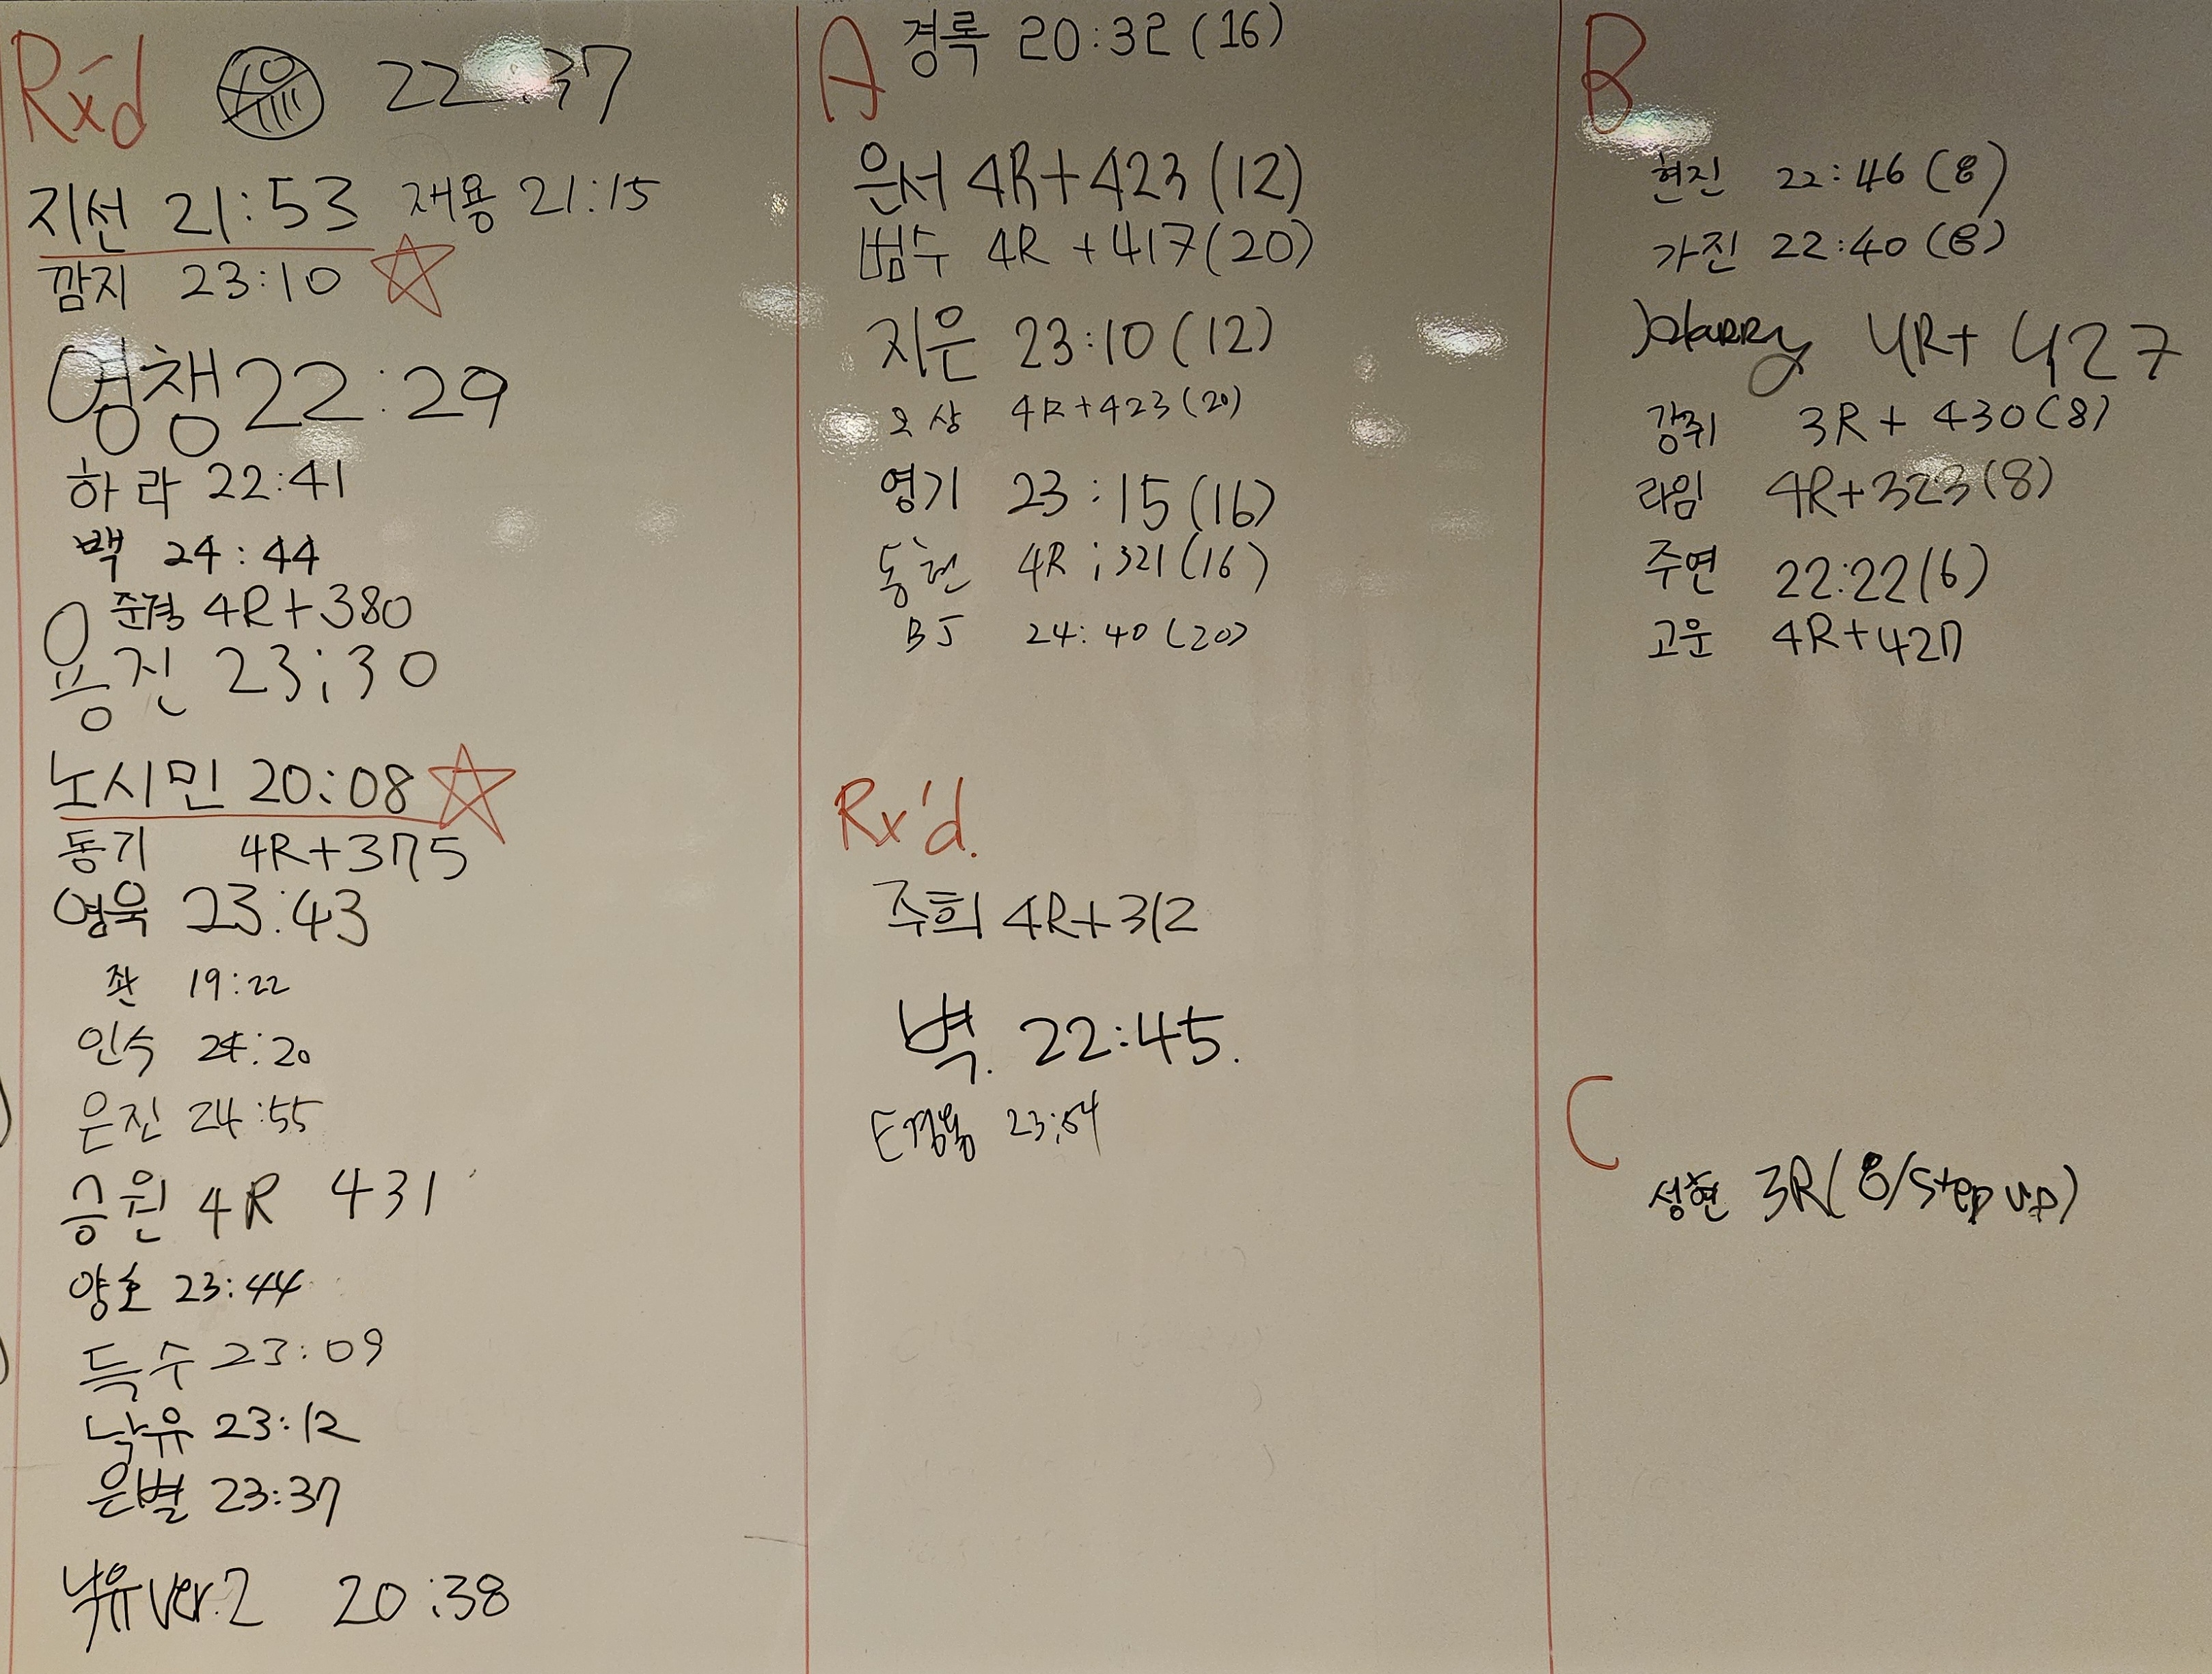 Rx'd 22:37
지선 21:53 재용 21:15
깜지 23:10
영챙 22:29
하라 22:41
백 24:44
준경 4R+380
용진 23;30
노시민 20:08
동기 4R+375
영욱 23:43
좌 19:22
인수 24:20
은진 24:55
승원 4R 431
양호 23:44
득수 23:09
낙유 23:12
은별 23:37
낙유 ver.2 20:38
A 경록 20:32 (16)
은서 4R+423 (12)
범수 4R +417 (20)
지은 23:10 (12)
오상 4R+423 (20)
영기 23:15 (16)
동현 4R ; 321 (16)
BJ 24:40 (20)
Rx'd.
주희 4R+312
벽. 22:45.
23;54
B
현진 22:46 (8)
가진 22:40 (8)
Harry 4R+ 427
강쥐 3R+ 430 (8)
라임 4R+323 (8)
주연 22:22 (6)
고운 4R+427
C
성현 3R (8/step up)